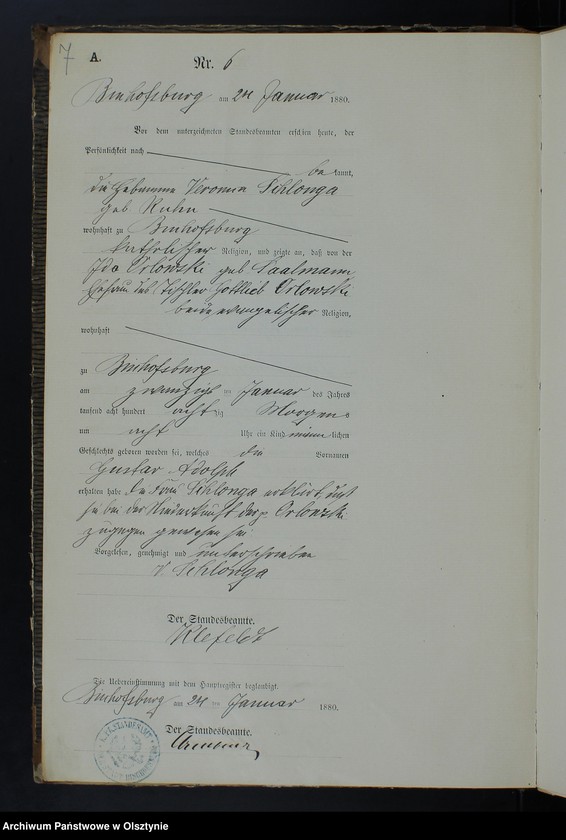 7
A.
Nr. 6
Bischofsburg am 24 Januar 1880.
Vor dem unterzeichneten Standesbeamten erschien heute, der
Persönlichkeit nach
be kannt,
die Hebamme Veronica Schlonga
geb. Kuhn
wohnhaft zu Bischofsburg
katholischer Religion, und zeigte an, daß von der
Ida Orlowski geb Saalmann
Ehefrau des Tischler Gottlieb Orlowski
beide evangelischer Religion,
wohnhaft
zu Bischofsburg
am zwanzigsten Januar des Jahres
tausend acht hundert achtzig Morgens
um acht Uhr ein Kind männlichen
Geschlechts geboren worden sei, welches die Vornamen
Gustav Adolph
erhalten habe. Die Frau Schlonga erklärt, daß
sie bei der Niederkunft der p Orlowski
zugegen gewesen sei
Vorgelesen, genehmigt und unterschrieben
V. Schlonga
Der Standesbeamte.
Klefeldt
Die Uebereinstimmung mit dem Hauptregister beglaubigt.
Bischofsburg am 24 ten Januar 1880.
Der Standesbeamte.
Archiwum Państwowe w Olsztynie